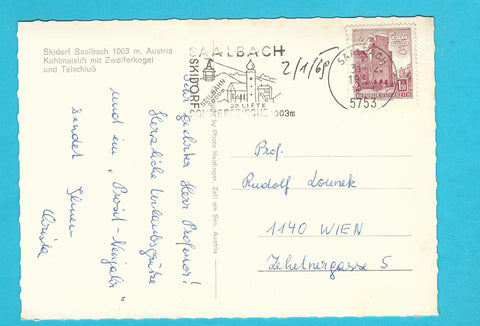 Skidorf Saalbach 1003 m, Austria
Kohlmaislift mit Zwölferkogel
und Talschluß
SAALBACH
SKIDORF
SEILBAHN
20 LIFTE
1003m
SAALBACH
5753
REPUBLIK ÖSTERREICH
by Photo Heidinger, Zell am See, Austria
Sehr geehrter Herr Professor!
Herzliche Urlaubsgrüße
und ein "Prosit-Neujahr"
sendet Ihnen
Christa
Prof.
Rudolf Lourek
1140 WIEN
Zehetnergasse 5